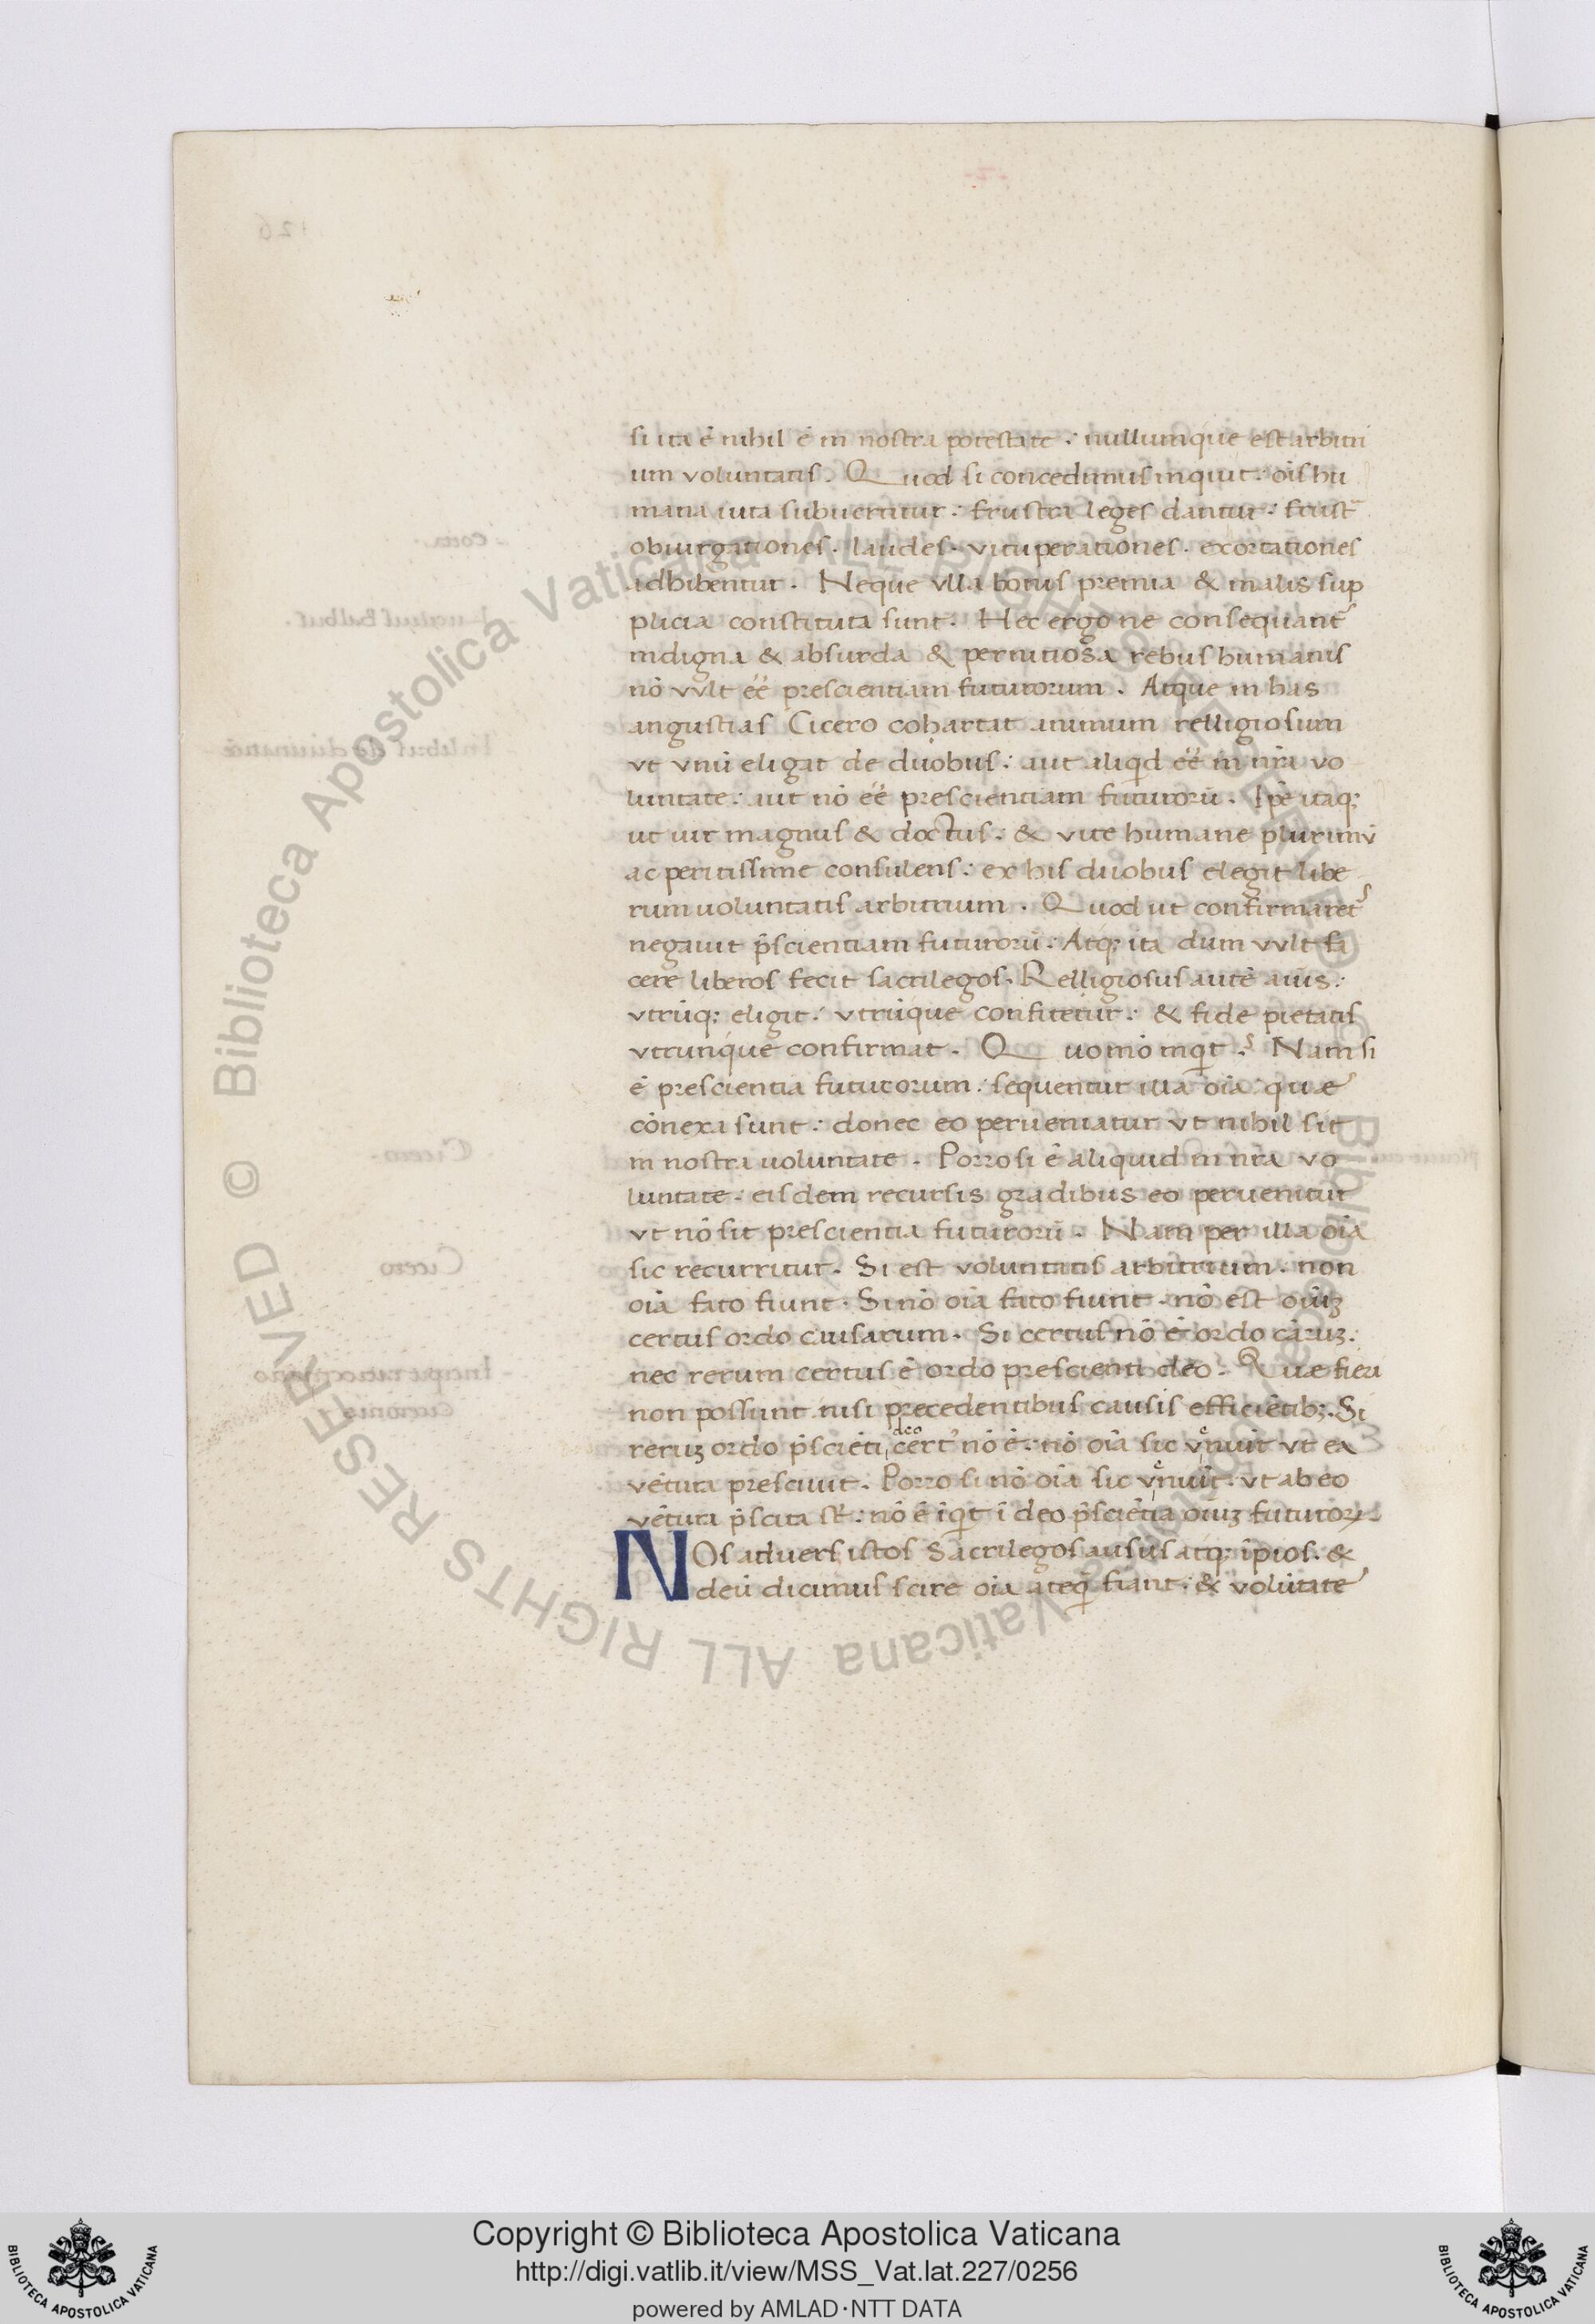 si ita ē nihil ē in nostra potestate : nullumque est arbitri
um voluntatis . Quod si concedimus inquit : oīs hu
mana uita subuertitur : frustra leges dantur : frust̄
obiurgationes . laudes . vituperationes . exortationes
adhibentur . Neque vlla bonis premia & malis sup
plicia constituta sunt . Hec ergo ne consequant̄
indigna & absurda & pernitiosa rebus humanis
nō vvlt ēē prescientiam futurorum . Atque in has
angustias Cicero cohartat animum relligiosum
vt vnū eligat de duobus : aut aliqd ēē in nrā vo
luntate : aut nō ēē prescientiam futurorū . Ipē itaq;
ut uir magnus & doctus : & vite humane plurimū
ac peritissime consulens : ex his duobus elegit libe
rum uoluntatis arbitrium . Quod ut confirmaret̄
negauit p̄scientiam futurorū : Atq; ita dum vvlt fa
cere liberos fecit sacrilegos . Relligiosus autē aīus :
vtrūq; eligit : vtrūque confitetur : & fide pietatis
vtrunque confirmat . Quomō inqt . Nam si
ē prescientia futurorum : sequentur illa oīa quæ
cōnexa sunt : donec eo perueniatur vt nihil sit
in nostra uoluntate . Porro si ē aliquid in nrā vo
luntate . eisdem recursis gradibus eo peruenitur
vt nō sit prescientia futurorū . Nam per illa oīa
sic recurritur . Si est voluntatis arbitrium . non
oīa fato fiunt . Si nō oīa fato fiunt . nō est oīuȝ
certus ordo causarum . Si certus nō ē ordo cāruȝ :
nec rerum certus ē ordo prescienti deo . Quæ fieri
non possunt nisi precedentibus causis efficiētibȝ . Si
reruȝ ordo p̄sciēti deo cert' nō ē : nō oīa sic veniūt vt ea
vētura presciuit . Porro si nō oīa sic veniūt . vt ab eo
vētura p̄scita st̄ : nō ē īqt ī deo p̄sciētia oīuȝ futuroꝝ
NOs aduers istos Sacrilegos ausus atq; īpios . &
deū dicimus scire oīa anteq̄ fiant : & volūtate
Copyright © Biblioteca Apostolica Vaticana
http://digi.vatlib.it/view/MSS_Vat.lat.227/0256
powered by AMLAD·NTT DATA
BIBLIOTECA APOSTOLICA VATICANA
BIBLIOTECA APOSTOLICA VATICANA
© Biblioteca Apostolica Vaticana ALL RIGHTS RESERVED